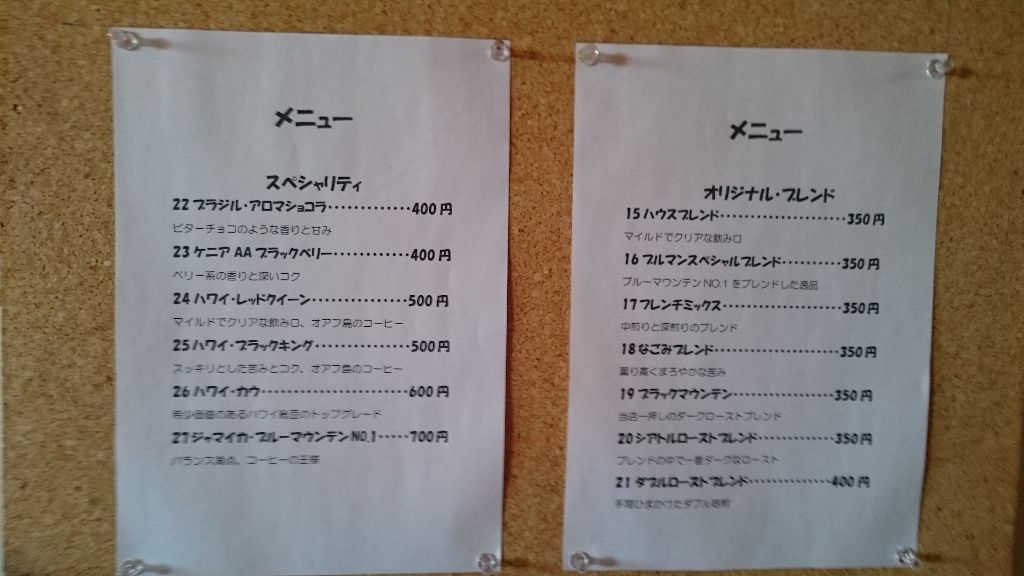 メニュー
スペシャリティ
22 ブラジル・アロマショコラ・・・・・・・・・・・・・400円
ビターチョコのような香りと甘み
23 ケニア AA ブラックベリー・・・・・・・・・・・・400円
ベリー系の香りと深いコク
24 ハワイ・レッドクイーン・・・・・・・・・・・・・・・500円
マイルドでクリアな飲み口、オアフ島のコーヒー
25 ハワイ・ブラックキング・・・・・・・・・・・・・・・500円
スッキリとした苦みとコク、オアフ島のコーヒー
26 ハワイ・カウ・・・・・・・・・・・・・・・・・・・・・・・600円
希少価値のあるハワイ島豆のトップグレード
27 ジャマイカ・ブルーマウンテンNO.1・・・・・700円
バランス満点、コーヒーの王様
メニュー
オリジナル・ブレンド
15 ハウスブレンド・・・・・・・・・・・・・・・・・・・・350円
マイルドでクリアな飲み口
16 ブルマンスペシャルブレンド・・・・・・・・・・350円
ブルーマウンテンNO.1をブレンドした逸品
17 フレンチミックス・・・・・・・・・・・・・・・・・・・350円
中煎りと深煎りのブレンド
18 なごみブレンド・・・・・・・・・・・・・・・・・・・・350円
薫り高くまろやかな苦み
19 ブラックマウンテン・・・・・・・・・・・・・・・・・350円
当店一押しのダークローストブレンド
20 シアトルローストブレンド・・・・・・・・・・・・350円
ブレンドの中で一番ダークなロースト
21 ダブルローストブレンド・・・・・・・・・・・・・400円
手間ひまかけたダブル焙煎